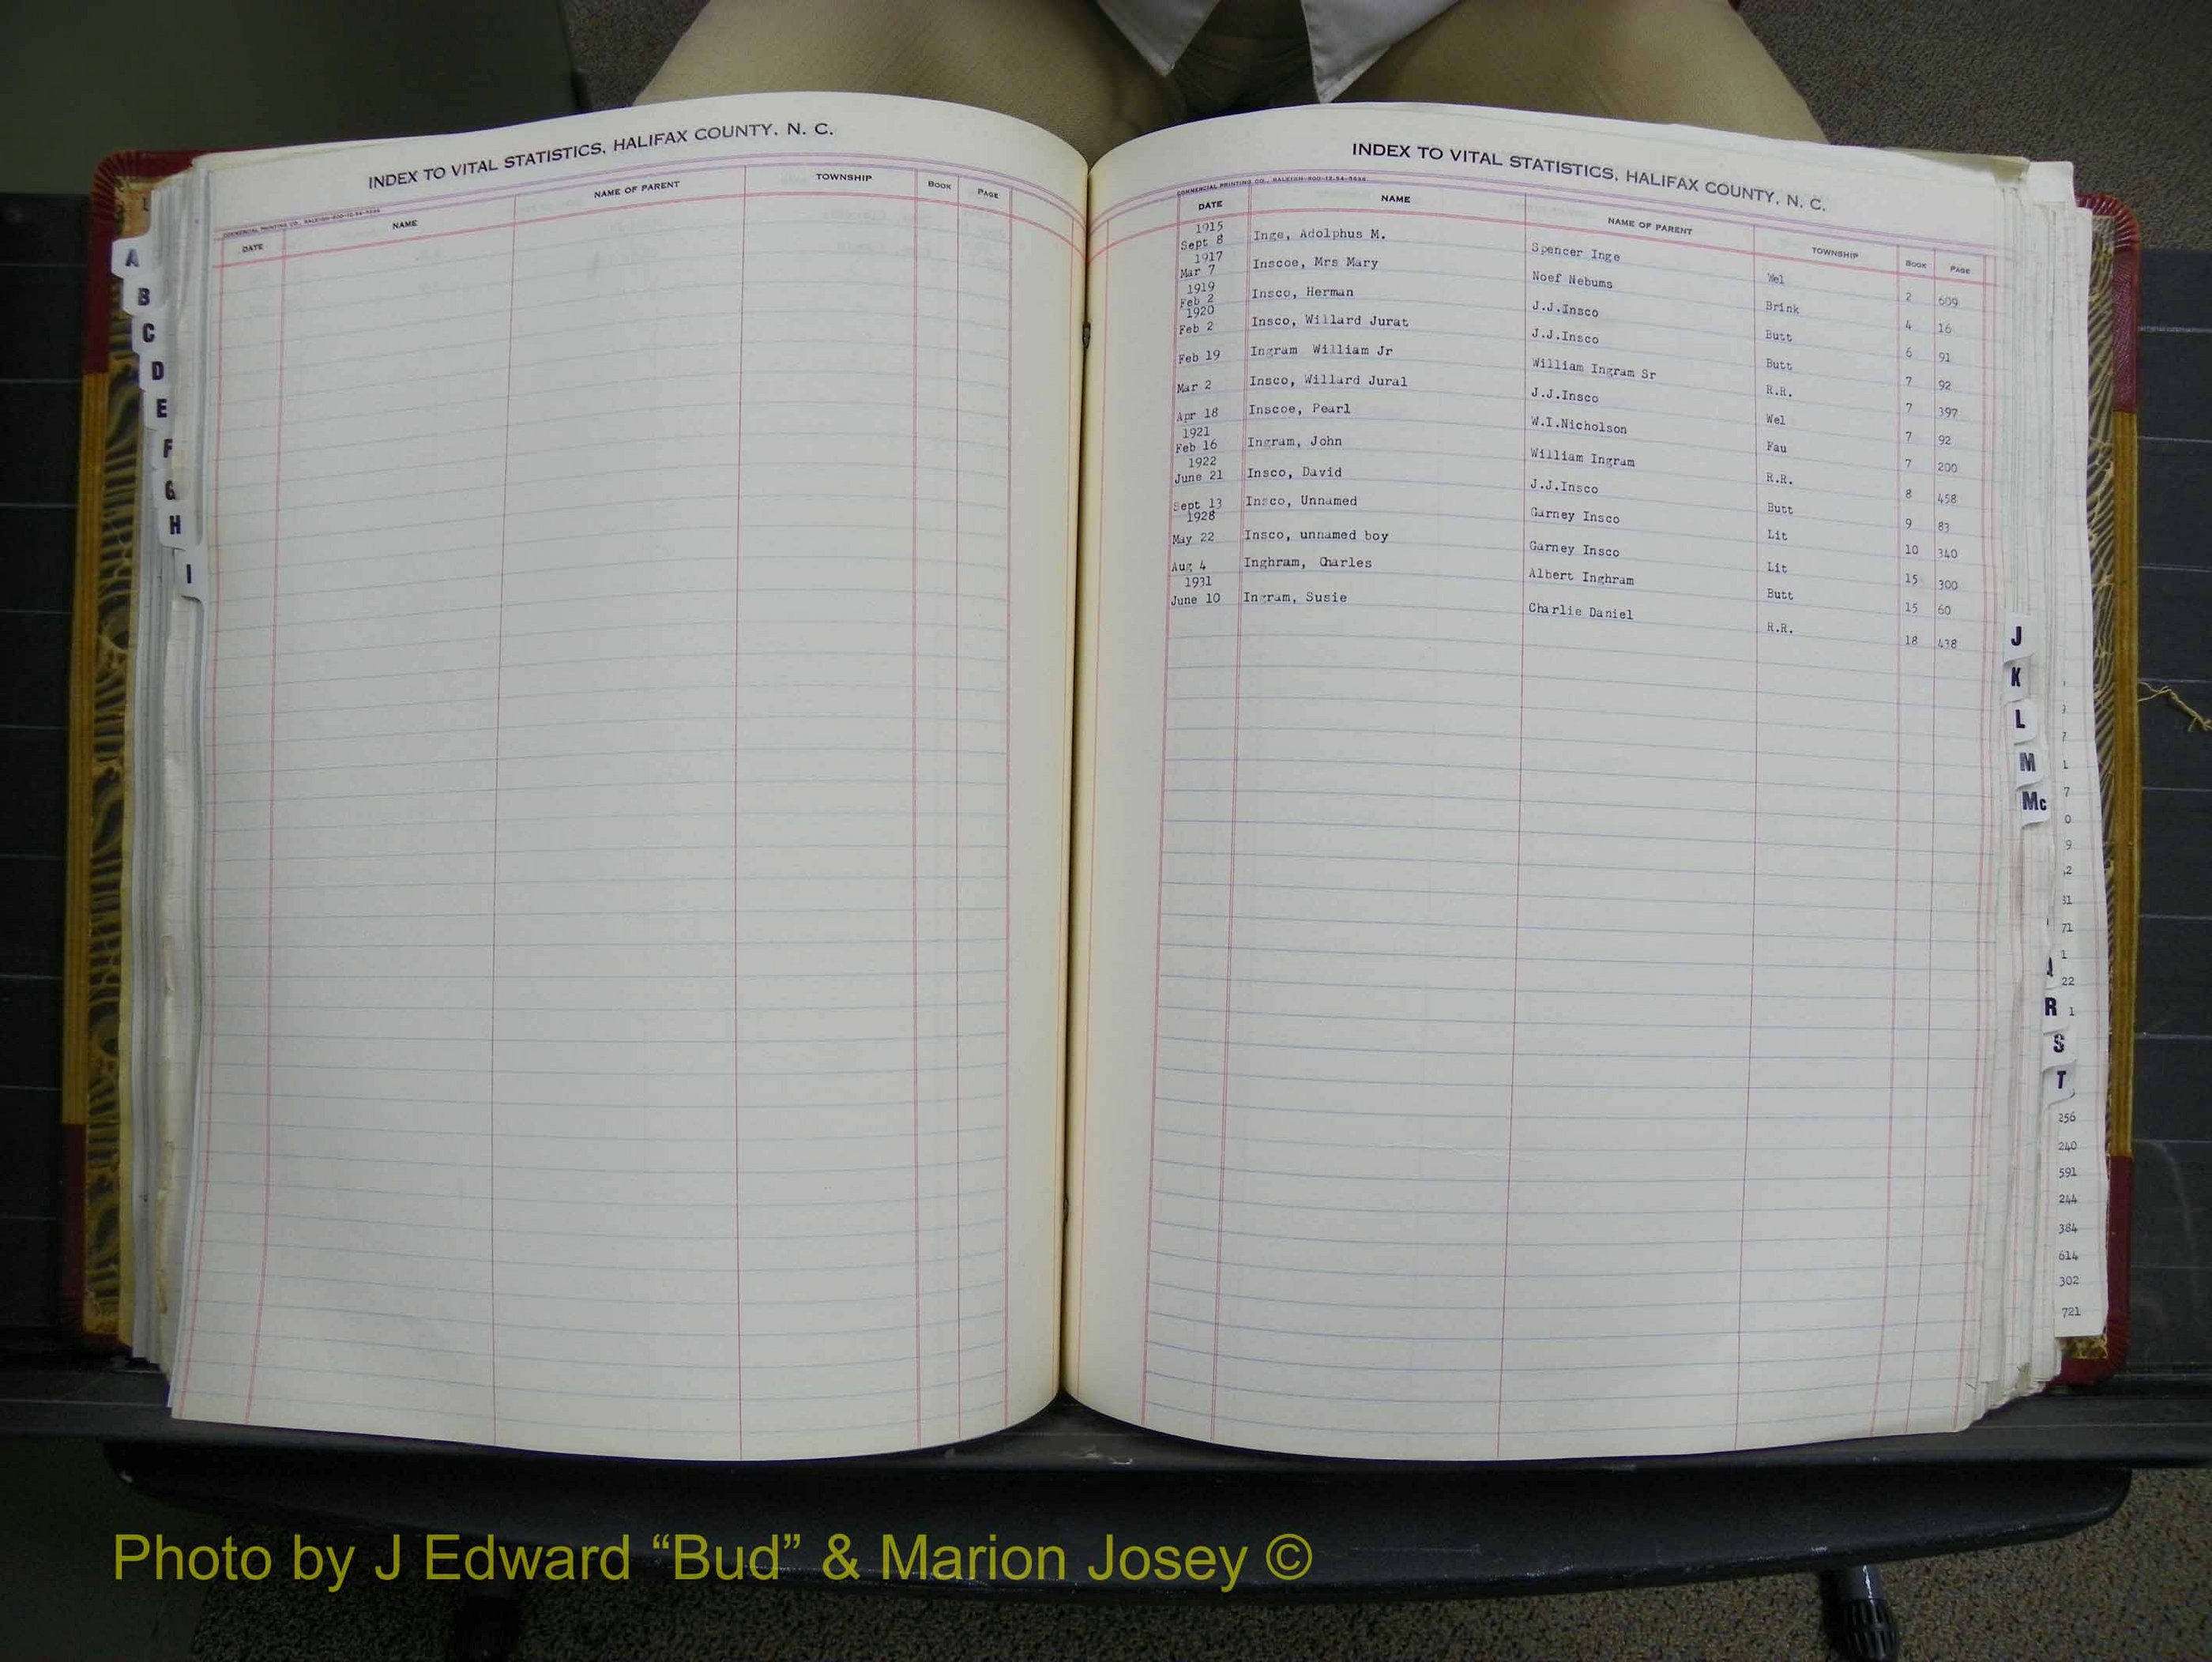 INDEX TO VITAL STATISTICS, HALIFAX COUNTY, N. C.
COMMERCIAL PRINTING CO., RALEIGH
DATE NAME NAME OF PARENT TOWNSHIP BOOK PAGE
A
B
C
D
E
F
G
H
I
INDEX TO VITAL STATISTICS, HALIFAX COUNTY, N. C.
COMMERCIAL PRINTING CO., RALEIGH
DATE NAME NAME OF PARENT TOWNSHIP BOOK PAGE
1915
Sept 8 Inge, Adolphus M. Spencer Inge Wel 2 609
1917
Mar 7 Inscoe, Mrs Mary Noef Nebums Brink 4 16
1919
Feb 2 Insco, Herman J.J.Insco Butt 6 91
1920
Feb 2 Insco, Willard Jurat J.J.Insco Butt 7 92
Feb 19 Ingram William Jr William Ingram Sr R.R. 7 397
Mar 2 Insco, Willard Jural J.J.Insco Wel 7 92
Apr 18 Inscoe, Pearl W.I.Nicholson Fau 7 200
1921
Feb 16 Ingram, John William Ingram R.R. 8 458
1922
June 21 Insco, David J.J.Insco Butt 9 83
Sept 13 Insco, Unnamed Garney Insco Lit 10 340
1928
May 22 Insco, unnamed boy Garney Insco Lit 15 300
Aug 4 Inghram, Charles Albert Inghram Butt 15 60
1931
June 10 Ingram, Susie Charlie Daniel R.R. 18 438
J
K
L
M
Mc
R
S
T
7
1
7
0
9
71
1
22
1
256
240
591
244
384
614
302
721
Photo by J Edward “Bud” & Marion Josey ©